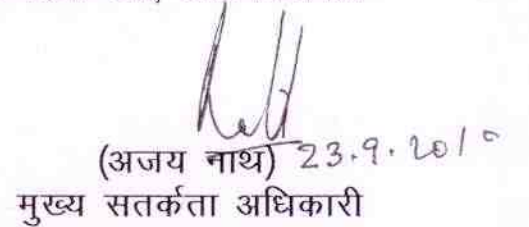 (अजय नाथ) 23.9.2010
मुख्य सतर्कता अधिकारी